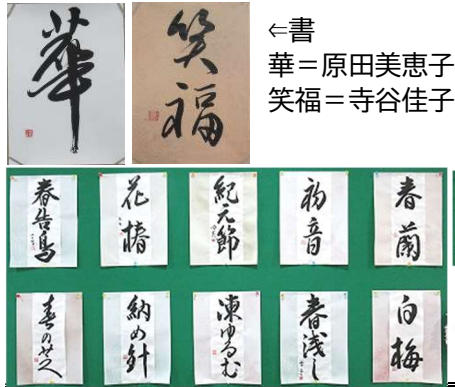 華
笑福
⇐書
華＝原田美恵子
笑福＝寺谷佳子
春告鳥
花椿
紀元節
初音
春蘭
春の世人
納め針
凍ゆるむ
春浅し
白梅